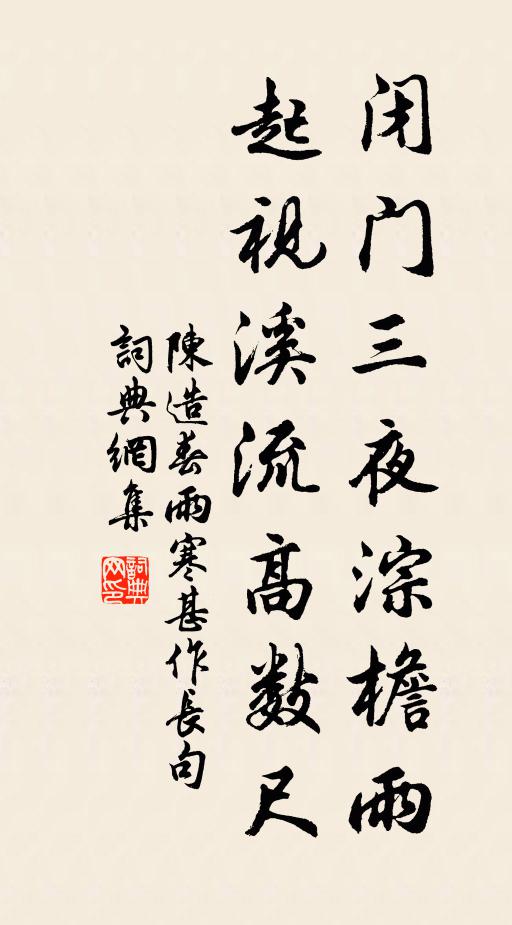 闭门三夜淙檐雨
起视溪流高数尺
陳造春雨寒甚作長句
詞典網集
詞典网印